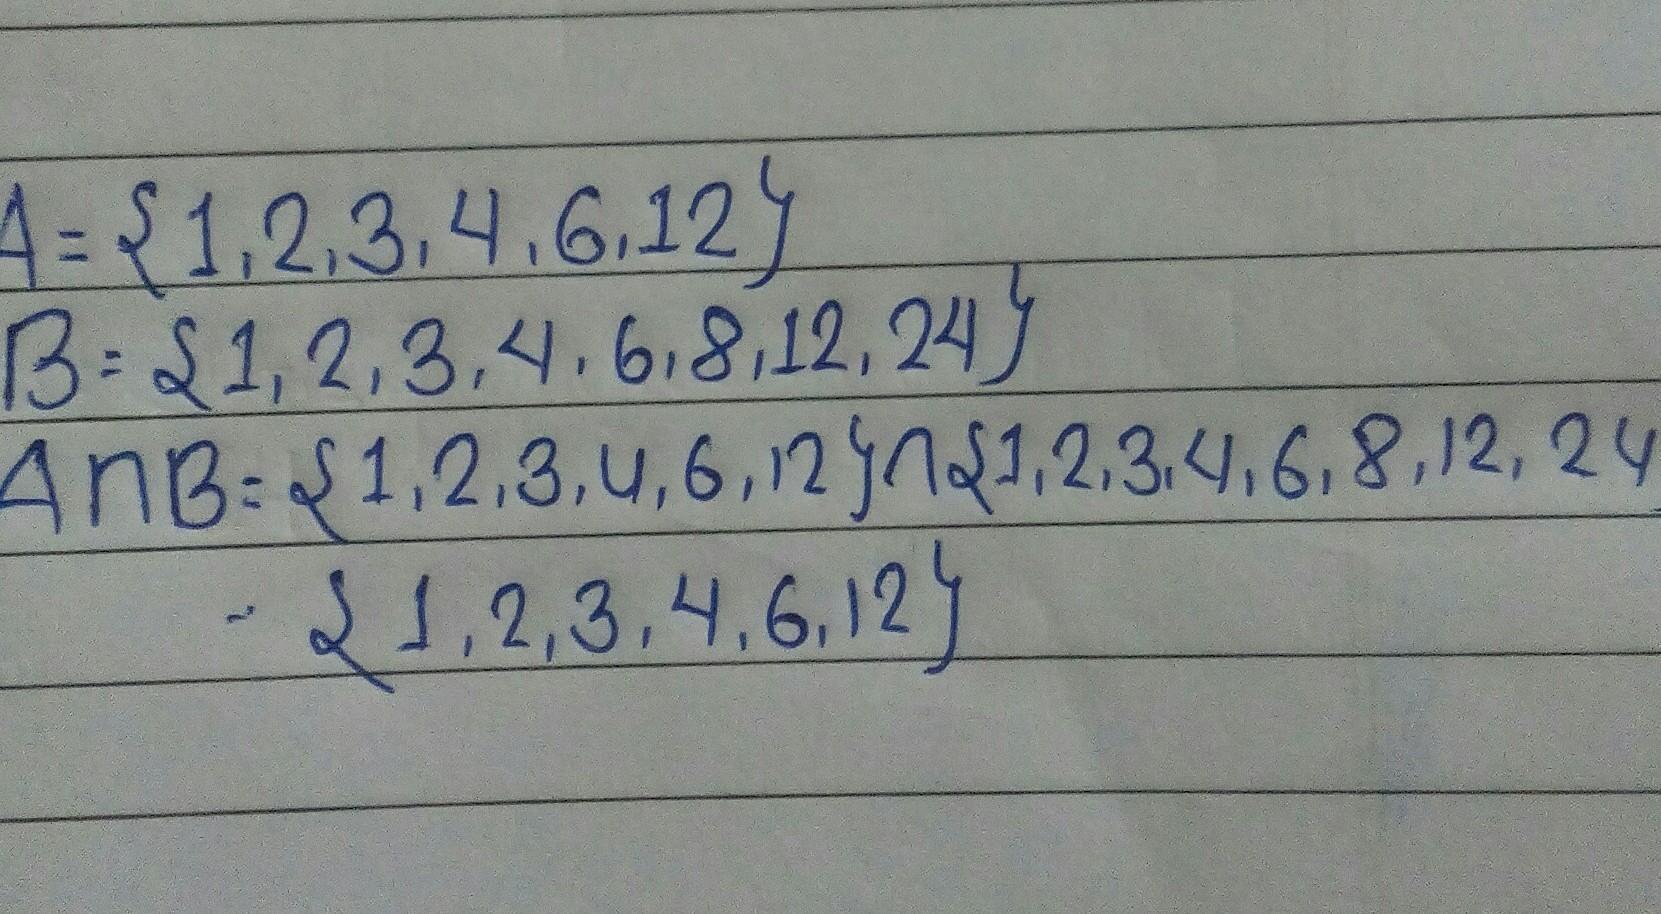 A = {1,2,3,4,6,12}
B = {1,2,3,4,6,8,12,24}
A∩B = {1,2,3,4,6,12}∩{1,2,3,4,6,8,12,24
= {1,2,3,4,6,12}